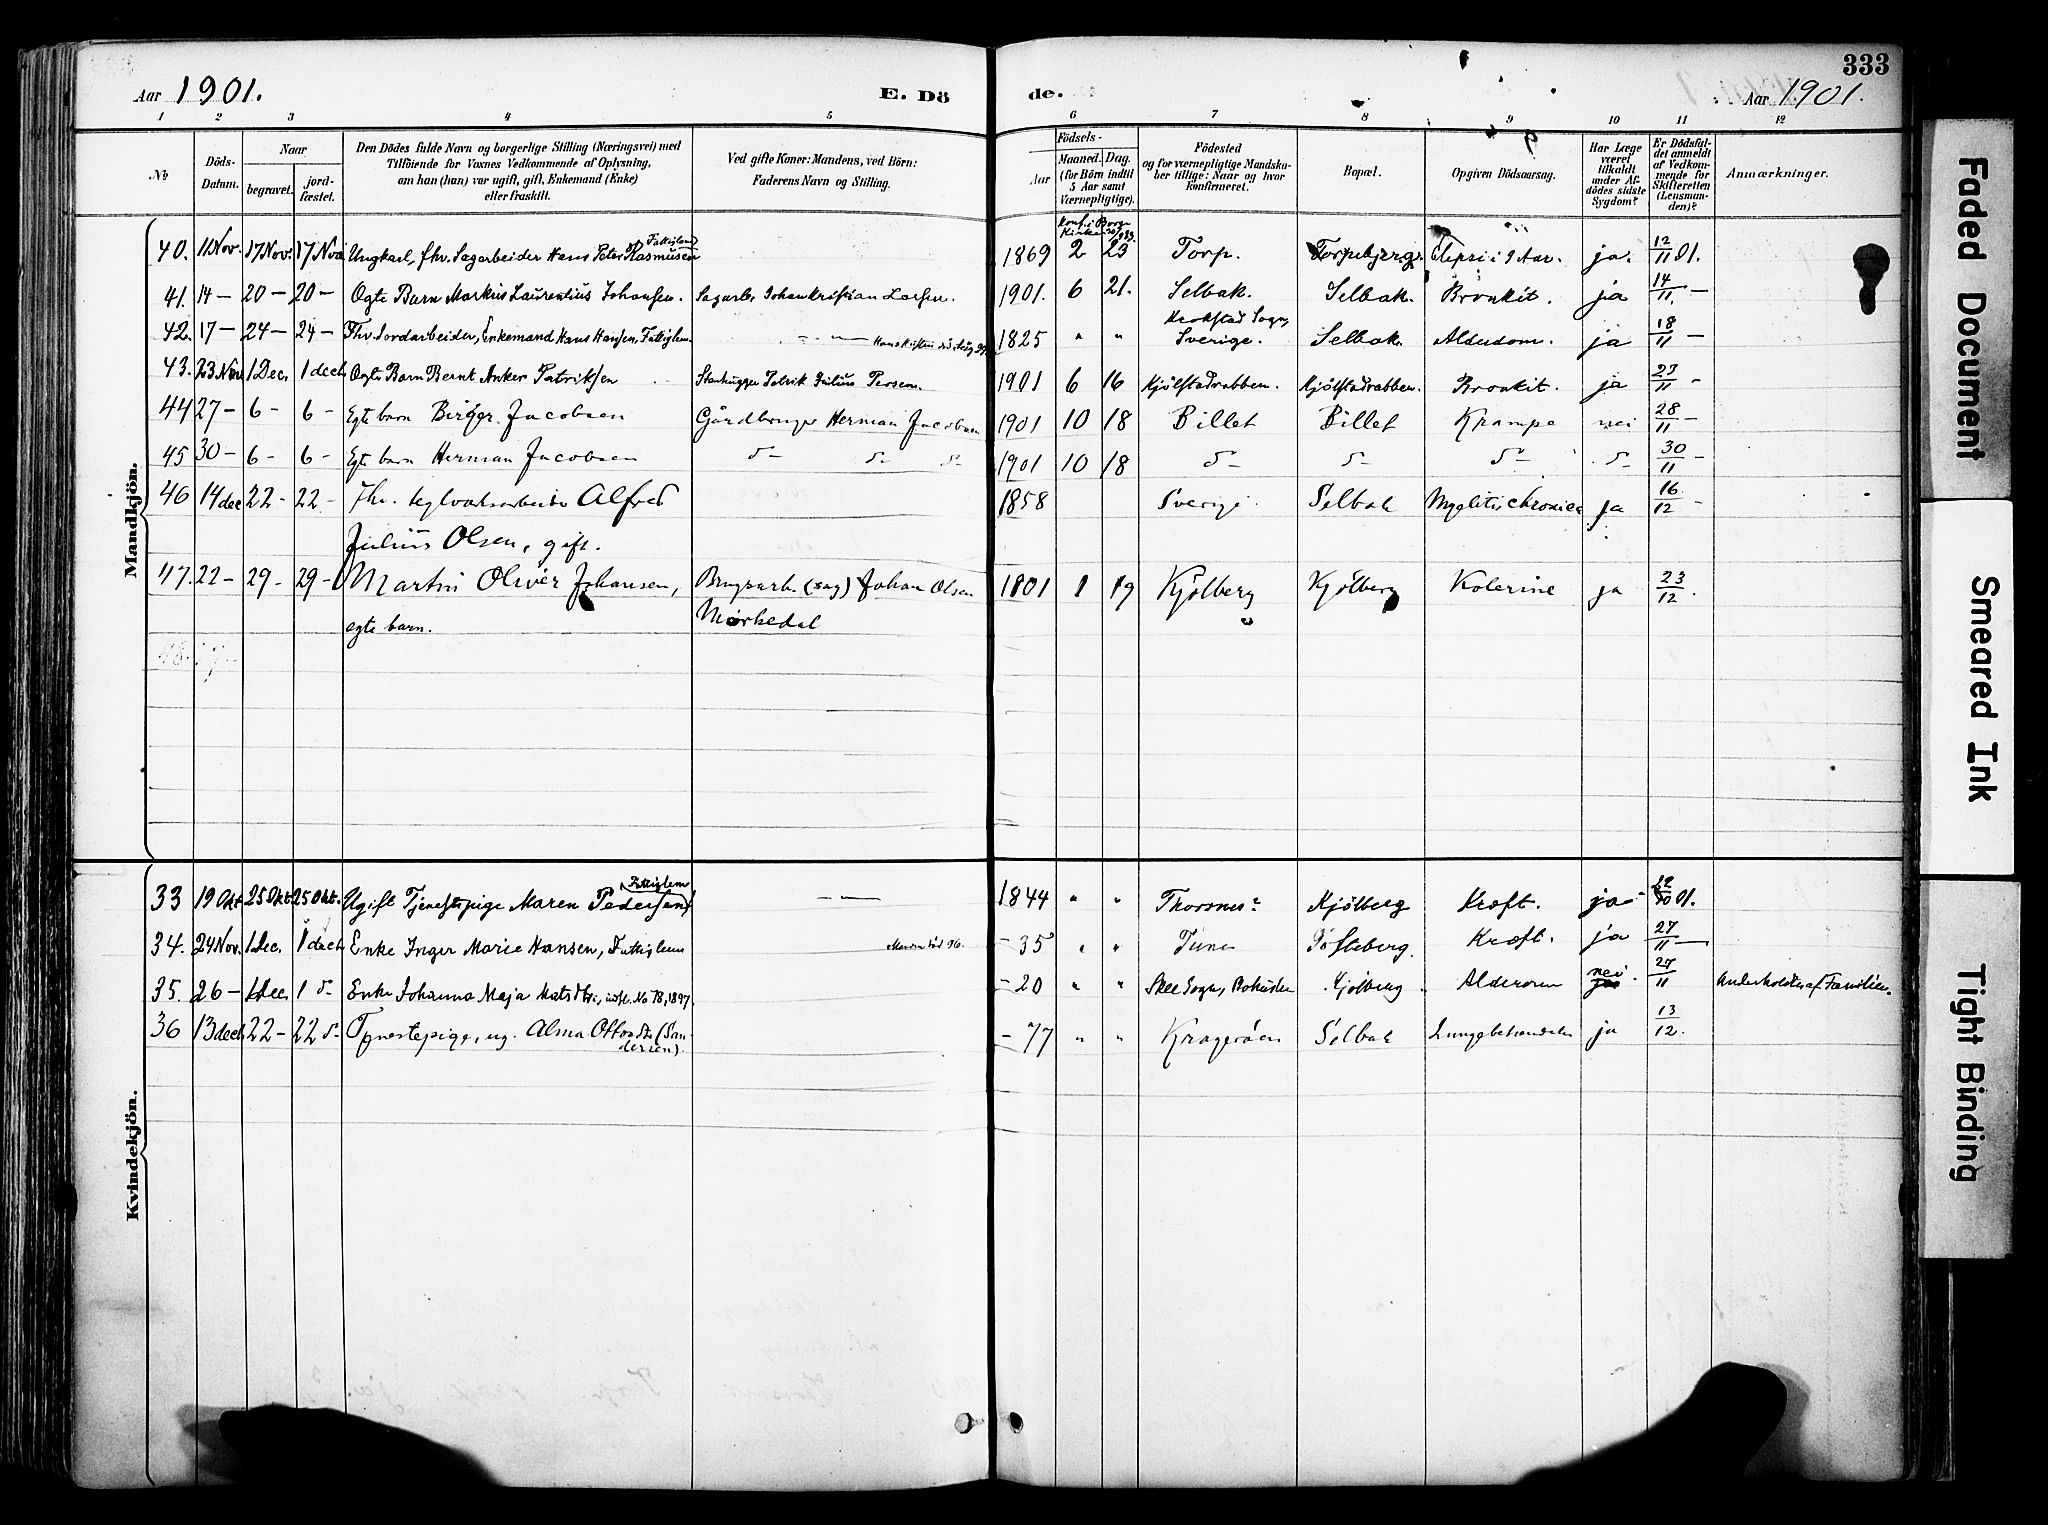 333
Aar 1901. E. Dö
de. Aar 1901.
1 2 3 4 5 6 7 8 9 10 11 12
No
Döds-Datum.
Naar
begravet. jordfæstet.
Den Dödes fulde Navn og borgerlige Stilling (Næringsvei) med
Tilföiende for Voxnes Vedkommende af Oplysning,
om han (hun) var ugift, gift, Enkemand (Enke)
eller fraskilt.
Ved gifte Koner: Mandens, ved Börn:
Faderens Navn og Stilling.
Födsels-
Aar
Maaned. Dag.
(for Börn indtil
5 Aar samt
Værnepligtige).
Födested
og for værnepligtige Mandska-
ber tillige: Naar og hvor
konfirmeret.
Bopæl.
Opgiven Dödsaarsag.
Har Læge
været
tilkaldt
under Af-
dödes sidste
Sygdom?
Er Dödsfal-
det anmeldt
af Vedkom-
mende for
Skifteretten
(Lensman-
den)?
Anmærkninger.
Mandkjön.
Konf. i Borge
Kirke
Fattiglem
40. 11 Nov. 17 Nov. 17 Nov. Ungkarl, fhv. Sagarbeider Hans Peter Rasmusen 1869 2 23 Torp. Torpebjerg. Lepsi i 9 Aar. ja. 12/11 01.
41. 14 — 20 — 20 — Ægte Barn Markus Laurentius Johansen. Sagarb. Johan Kristian Larsen. 1901. 6 21. Selbak. Selbak. Bronkit. ja 14/11 —
Krokstad Sogn,
42. 17 — 24 — 24 — Fhv. Jordarbeider, Enkemand Hans Hansen, Fattiglem. — 1825 " " Sverige. Selbak. Alderdom. ja 18/11 —
43. 23 Nov. 1 Dec. 1 dec. Ægte Barn Bernt Anker Patriksen Stenhugger Patrik Julius Persen. 1901 6 16 Kjölstadrabben. Kjölstadrabben. Bronkit. ja 23/11 —
44 27 — 6 — 6 — Egte barn Birger Jacobsen Gårdbruger Herman Jacobsen 1901 10 18 Billet Billet Krampe nei 28/11 —
45 30 — 6 — 6 — Egte barn Herman Jacobsen d— d— d— 1901 10 18 d— d— d— d— 30/11
46 14 dec 22 - 22 - Fhv. teglværksarbeider Alfred 1858 Sverige. Selbak Myelitis chronica ja 16/12 —
Julius Olsen, gift.
47. 22 — 29 - 29 - Martin Oliver Johansen, Brugsarb. (sag) Johan Olsen 1801 1 19 Kjölberg Kjölberg Kolerine ja 23/12.
egte barn. Mörkedal
48.
Kvindekjön.
Fattiglem
33 19 Okt 25 Okt 25 Okt. Ugift Tjenestepige Maren Pedersen — 1844 " " Thorsnes Kjölberg Kræft. ja 01.
34. 24 Nov. 1 Dec. 1 dec. Enke Inger Marie Hansen, Fattiglem Manden död 96. — 35 " " Tune Töfteberg. Kræft. ja 27/11 —
35. 26 — 1 Dec. 1 d— Enke Johanna Maja Matsdtr., indfl. No 78, 1897. — 20 " " Skee Sogn, Bohuslen Kjölberg Alderdom nei 27/11 Underholdtes af Familien.
36 13 dec. 22 — 22 d— Tjenestepige, ug. Alma Ottosdtr. (San-
dersen) — 77 " " Kragerøen Selbak ja 13/12.
Faded Document
Smeared Ink
Tight Binding